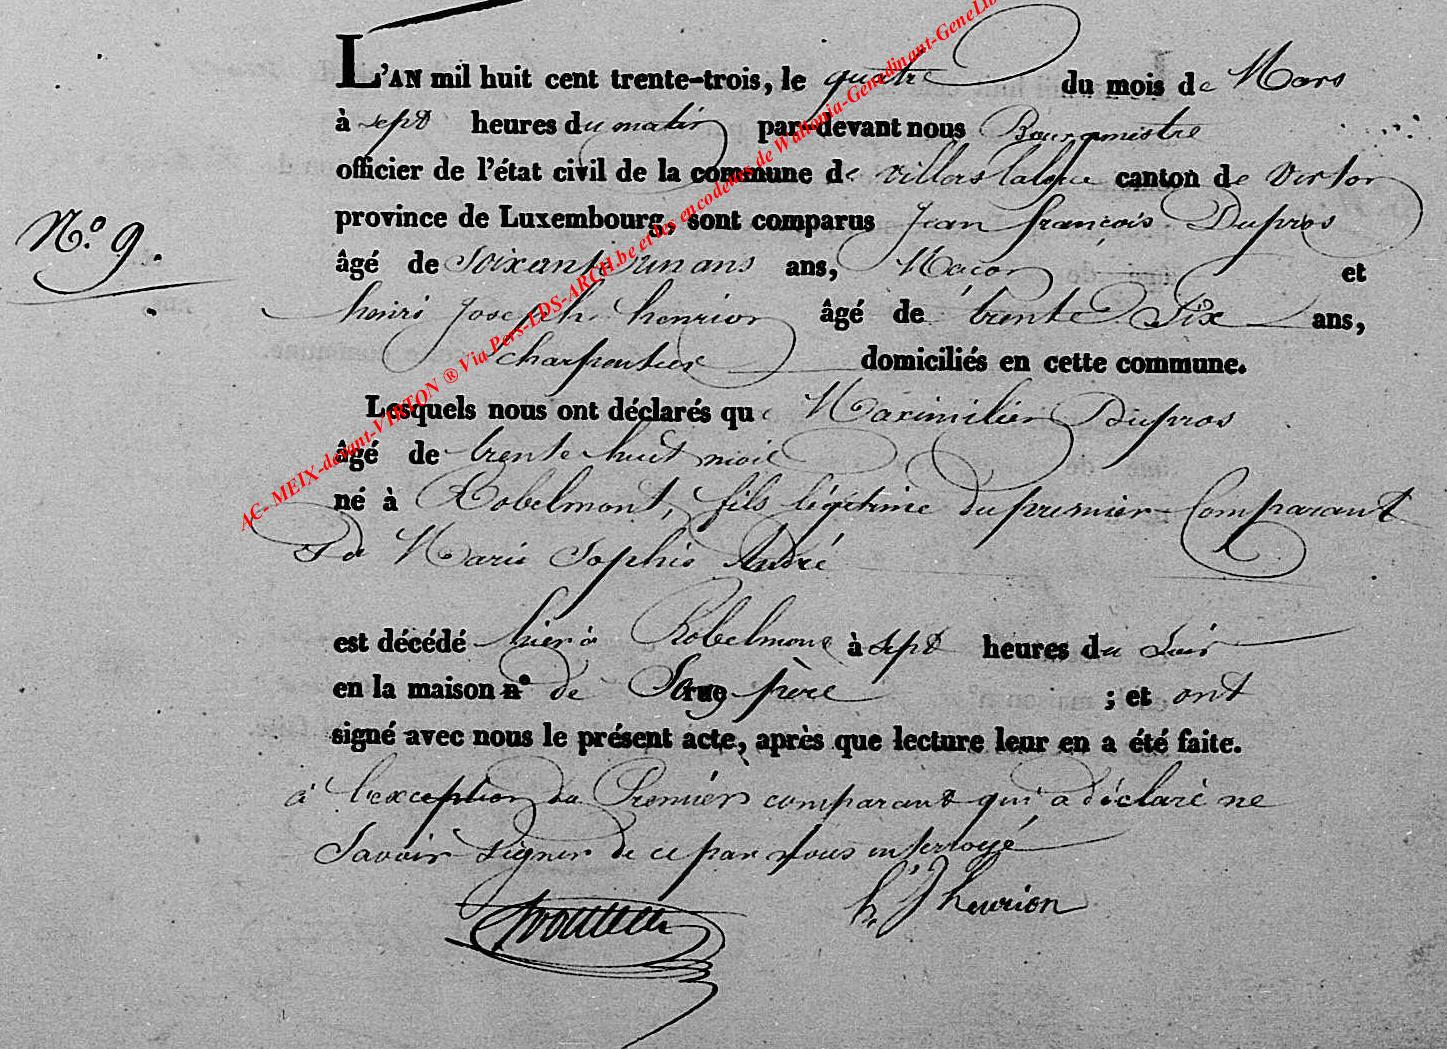 L'AN mil huit cent trente-trois, le quatre du mois de Mars
à sept heures du matin par-devant nous Bourgmestre
officier de l'état civil de la commune de Villers laloue canton de Virton
province de Luxembourg, sont comparus Jean françois Dupros
N.º 9.
âgé de Soixant'un ans ans, Maçon et
henri Joseph henrion âgé de trente Six ans,
charpentier domiciliés en cette commune.
Lesquels nous ont déclarés que Maximilien Dupros
âgé de trente huit mois
né à Robelmont, fils légitime du premier Comparant
& de Marie Sophie André
est décédé hier à Robelmont à sept heures du Soir
en la maison nº de Son rue père ; et ont
signé avec nous le présent acte, après que lecture leur en a été faite.
à l'exception du Premier comparant qui a déclaré ne
Savoir signer de ce par Nous interrogé
h J henrion
AC- MEIX-devant-VIRTON ® Via Pers-LDS-ARCH.be et les encodeurs de Wallonia-Genedinant-GeneLib